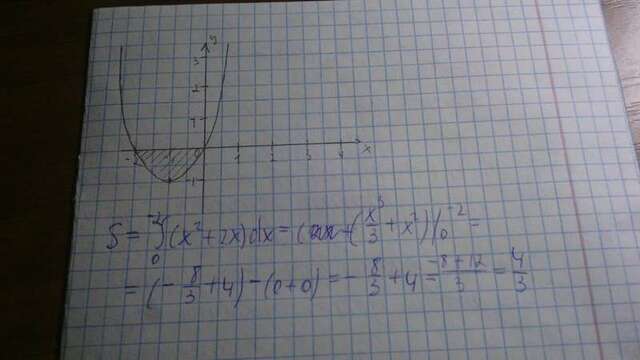 y
3
2
1
-2 0 1 2 3 4 x
-1
S = ∫₀⁻² (x² + 2x)dx = (x³/3 + x²)|₀⁻² =
= (-8/3 + 4) - (0 + 0) = -8/3 + 4 = (-8 + 12)/3 = 4/3